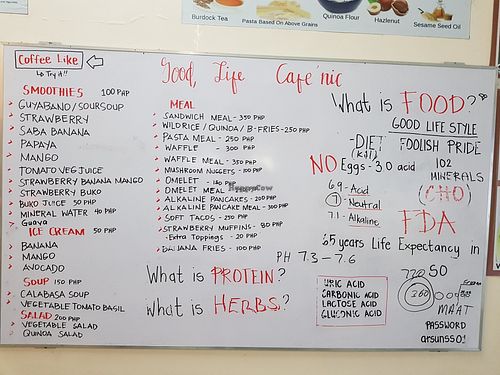 Burdock Tea
Pasta Based On Above Grains
Quinoa Flour
Hazlenut
Sesame Seed Oil
Coffee Like
to Try it!!
Good Life Cafe'nic
SMOOTHIES 100 PHP
GUYABANO/SOURSOUP
STRAWBERRY
SABA BANANA
PAPAYA
MANGO
TOMATO VEG JUICE
STRAWBERRY BANANA MANGO
STRAWBERRY BUKO
BUKO JUICE 50 PHP
MINERAL WATER 40 PHP
Guava
ICE CREAM 50 PHP
BANANA
MANGO
AVOCADO
SOUP 150 PHP
CALABASA SOUP
VEGETABLE TOMATO BASIL
SALAD 200 PHP
VEGETABLE SALAD
QUINOA SALAD
MEAL
SANDWICH MEAL - 350 PHP
WILD RICE / QUINOA / B-FRIES - 250 PHP
PASTA MEAL - 250 PHP
WAFFLE - 300 PHP
WAFFLE MEAL - 350 PHP
MUSHROOM NUGGETS - 100 PHP
OMELET - 180 PHP
OMELET MEAL
ALKALINE PANCAKES - 200 PHP
ALKALINE PANCAKE MEAL - 300 PHP
SOFT TACOS - 250 PHP
STRAWBERRY MUFFINS - 80 PHP
-Extra Toppings - 20 PHP
BANANA FRIES - 100 PHP
What is PROTEIN?
What is HERBS?
What is FOOD?
GOOD LIFE STYLE
-DIET FOOLISH PRIDE
NO Eggs - 30 acid
102 MINERALS
6.9 - Acid
7 - Neutral
7.1 - Alkaline
(CHO)
FDA
65 years Life Expectancy in
PH 7.3 - 7.6
URIC ACID
CARBONIC ACID
LACTOSE ACID
GLUCONIC ACID
720 50
360
MAAT
PASSWORD
arsunss01
HappyCow